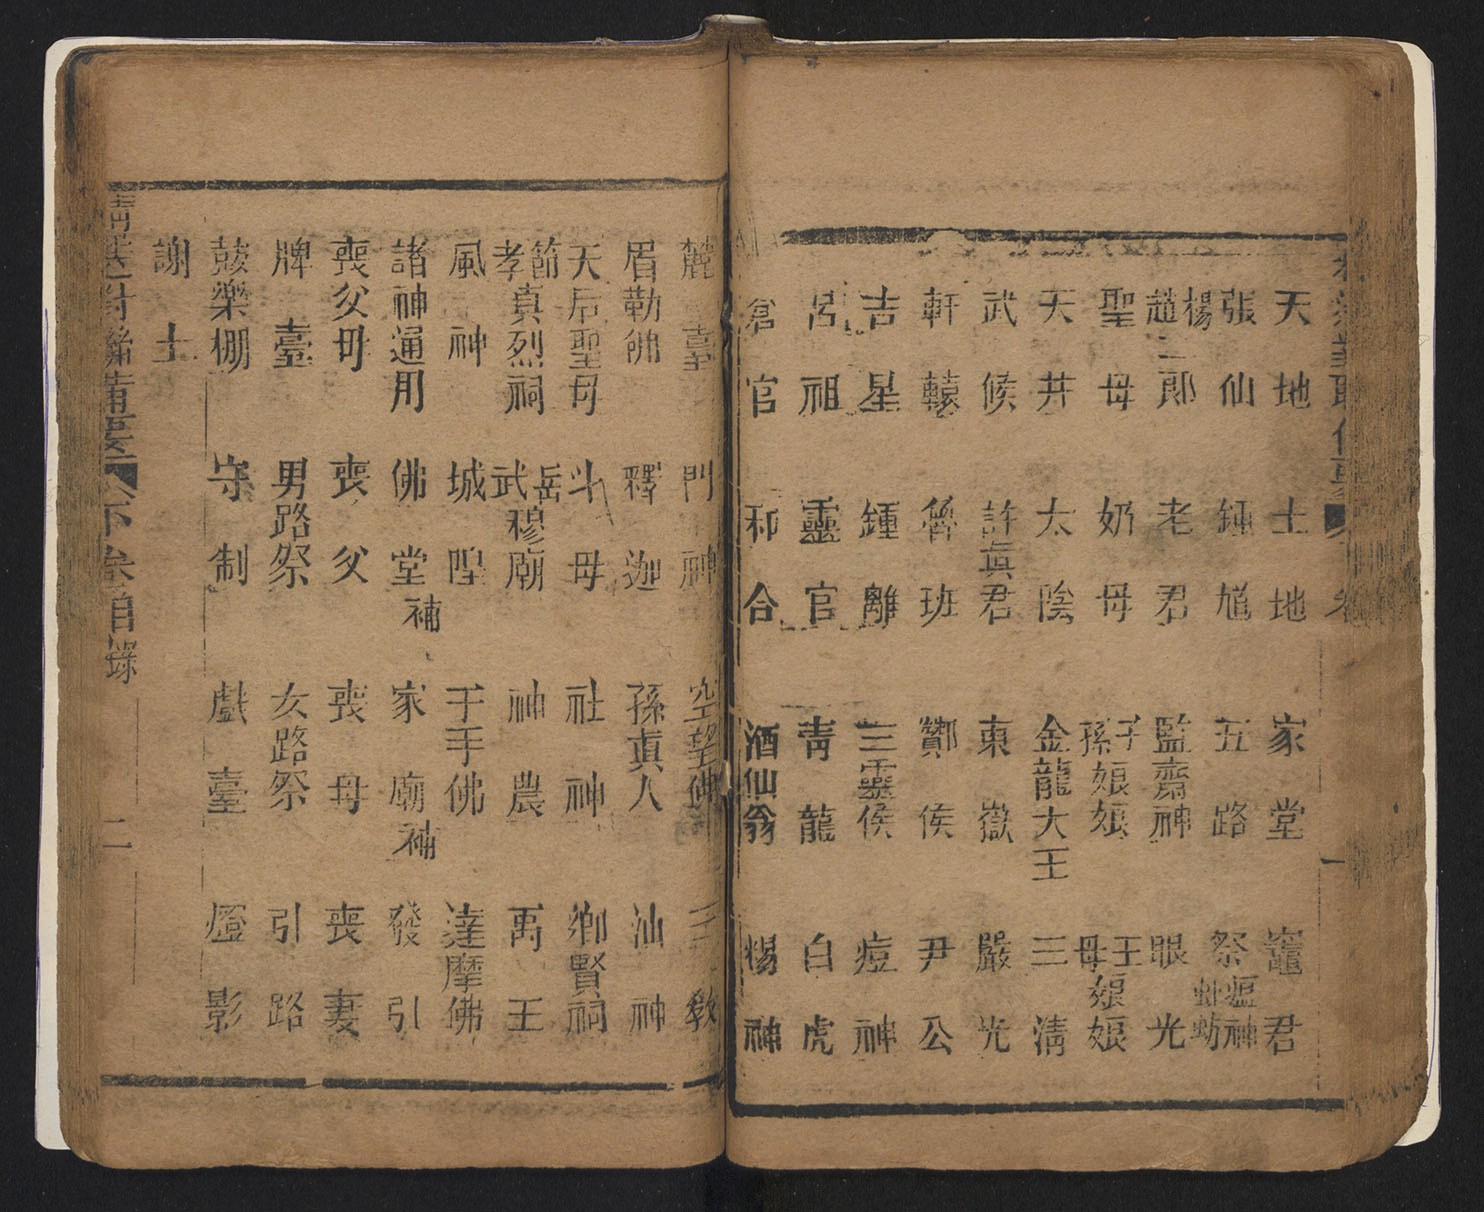 天地　土地　家堂　竈君
張仙　鍾馗　五路　祭蝗神螞蚄
楊趙二郎　老君　監齋神　眼光
聖母　奶母　子孫娘娘　王母娘娘
天井　太陰　金龍大王　三清
武候　許眞君　東嶽　嚴光
軒轅　魯班　酇侯　尹公
吉星　鍾離　三靈侯　痘神
呂祖　靈官　青龍　白虎
倉官　和合　酒仙翁　楊神
門神　空望佛　三教
眉勒佛　釋迦　孫真人　汕神
天后聖母　斗母　社神　鄉賢祠
節孝真烈祠　岳武穆廟　神農　禹王
風神　城隍　千手佛　達摩佛
諸神通用　佛堂補　家廟補　發引
喪父母　喪父　喪母　喪妻
牌臺　男路祭　女路祭　引路
鼓樂棚　守制　戲臺　燈影
謝土
對聯備要　下卷目錄　二